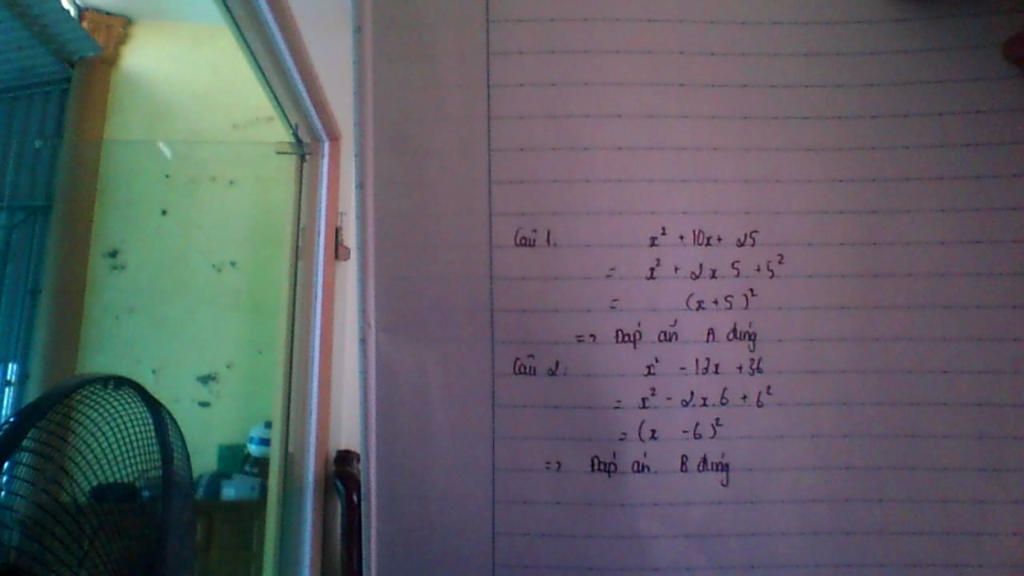 Câu 1. x² + 10x + 25
= x² + 2x.5 + 5²
= (x+5)²
=> Đáp án A đúng
Câu 2: x² - 12x + 36
= x² - 2x.6 + 6²
= (x - 6)²
=> Đáp án. B đúng